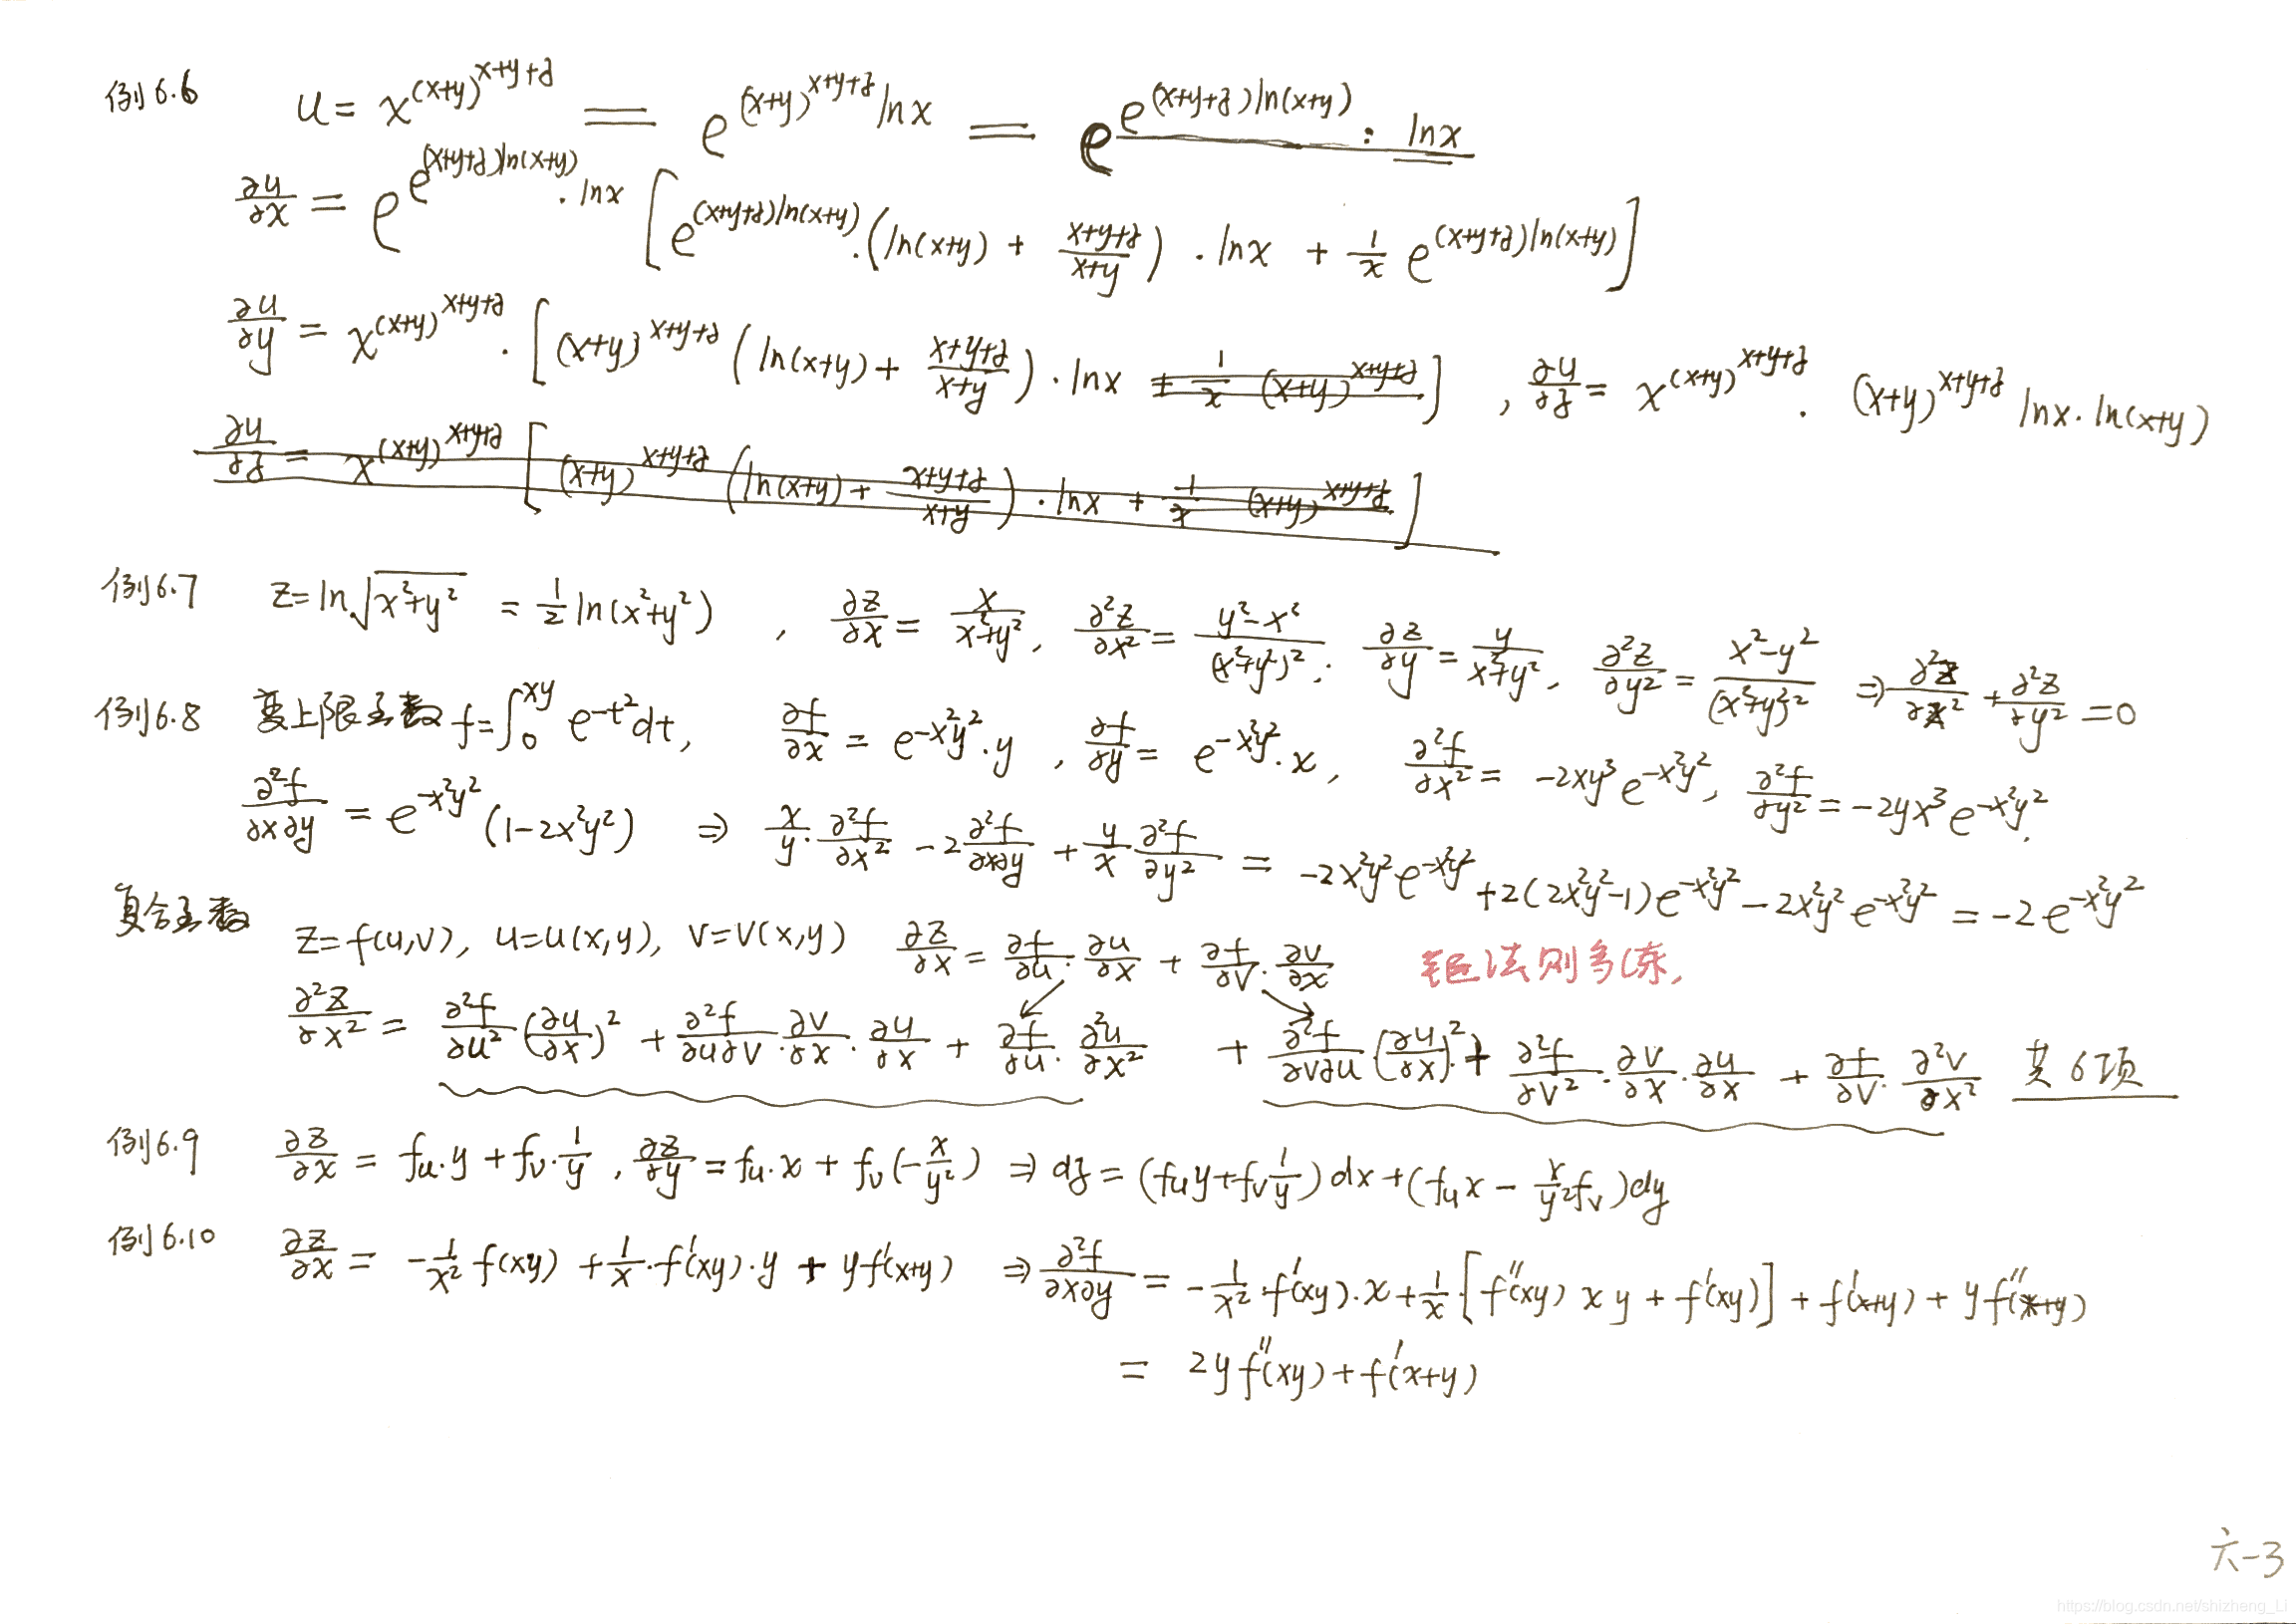 例6.6 u = x^{(x+y)^{x+y+z}} = e^{(x+y)^{x+y+z} lnx} = e^{e^{(x+y+z)ln(x+y)} · lnx}
∂u/∂x = e^{e^{(x+y+z)ln(x+y)} · lnx} [ e^{(x+y+z)ln(x+y)} · (ln(x+y) + (x+y+z)/(x+y)) · lnx + 1/x e^{(x+y+z)ln(x+y)} ]
∂u/∂y = x^{(x+y)^{x+y+z}} · [ (x+y)^{x+y+z} (ln(x+y) + (x+y+z)/(x+y)) · lnx + 1/x (x+y)^{x+y+z} ] , ∂u/∂z = x^{(x+y)^{x+y+z}} · (x+y)^{x+y+z} lnx · ln(x+y)
∂u/∂z = x^{(x+y)^{x+y+z}} [ (x+y)^{x+y+z} (ln(x+y) + (x+y+z)/(x+y)) · lnx + 1/x (x+y)^{x+y+z} ]
例6.7 z = ln√(x²+y²) = 1/2 ln(x²+y²) , ∂z/∂x = x/(x²+y²), ∂²z/∂x² = (y²-x²)/(x²+y²)², ∂z/∂y = y/(x²+y²), ∂²z/∂y² = (x²-y²)/(x²+y²)² ⇒ ∂²z/∂x² + ∂²z/∂y² = 0
例6.8 变上限函数 f = ∫₀^{xy} e^{-t²} dt, ∂f/∂x = e^{-x²y²} · y , ∂f/∂y = e^{-x²y²} · x, ∂²f/∂x² = -2xy³ e^{-x²y²}, ∂²f/∂y² = -2yx³ e^{-x²y²}.
∂²f/∂x∂y = e^{-x²y²} (1-2x²y²) ⇒ x/y · ∂²f/∂x² - 2 ∂²f/∂x∂y + y/x ∂²f/∂y² = -2x²y² e^{-x²y²} + 2(2x²y²-1) e^{-x²y²} - 2x²y² e^{-x²y²} = -2e^{-x²y²}
复合函数 z = f(u,v), u = u(x,y), v = v(x,y) ∂z/∂x = ∂f/∂u · ∂u/∂x + ∂f/∂v · ∂v/∂x 法则多练,
∂²z/∂x² = ∂²f/∂u² (∂u/∂x)² + ∂²f/∂u∂v · ∂v/∂x · ∂u/∂x + ∂f/∂u · ∂²u/∂x² + ∂²f/∂v∂u · (∂u/∂x)² + ∂²f/∂v² · ∂v/∂x · ∂u/∂x + ∂f/∂v · ∂²v/∂x² 共6项
例6.9 ∂z/∂x = f_u · y + f_v · 1/y , ∂z/∂y = f_u · x + f_v (-x/y²) ⇒ dz = (f_u y + f_v 1/y) dx + (f_u x - x/y² f_v) dy
例6.10 ∂z/∂x = -1/x² f(xy) + 1/x · f'(xy) · y + y f'(x+y) ⇒ ∂²f/∂x∂y = -1/x² · f'(xy) · x + 1/x · [ f''(xy) x y + f'(xy) ] + f'(x+y) + y f''(x+y)
= 2y f''(xy) + f'(x+y)
六-3
https://blog.csdn.net/shizheng_Li